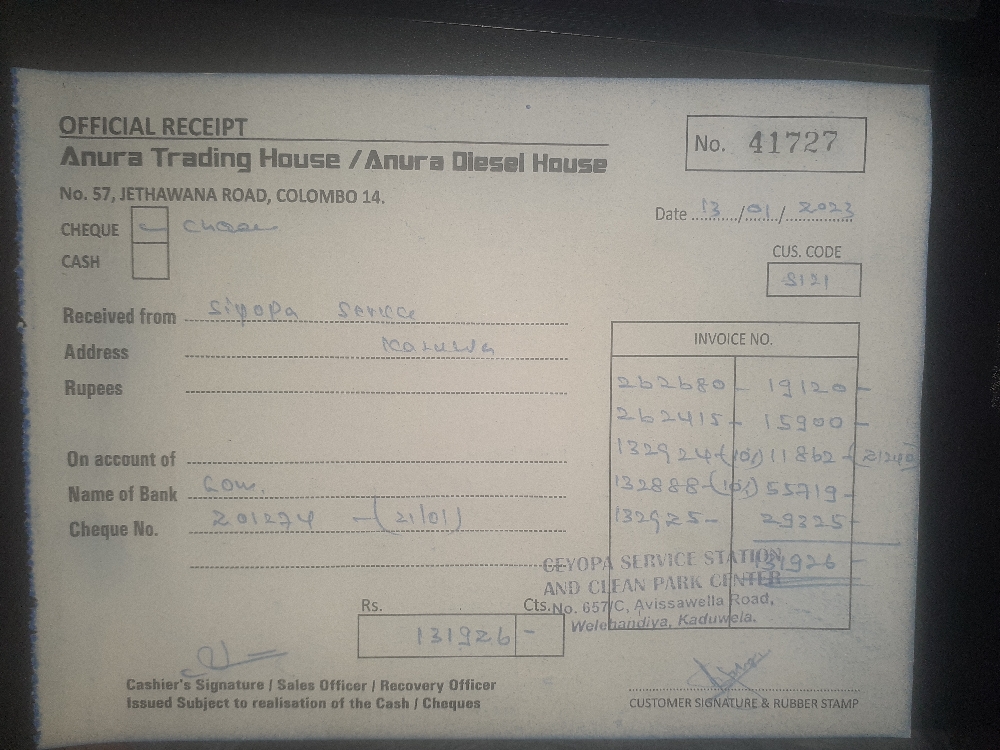 OFFICIAL RECEIPT
Anura Trading House / Anura Diesel House
No. 41727
No. 57, JETHAWANA ROAD, COLOMBO 14.
Date 13/01/2023
CHEQUE – Cheque
CASH
CUS. CODE
S171
Received from Siyopa Service
Address Kaduwela
Rupees
INVOICE NO.
262680 – 19120 –
262415 – 15900 –
132924 – (10%) 11862 –
132888 – (10%) 55719 –
132925 – 29325 –
131926 –
On account of
Name of Bank Com.
Cheque No. 201274 – (21/01)
GEYOPA SERVICE STATION
AND CLEAN PARK CENTER
No. 657/C, Avissawella Road,
Welehandiya, Kaduwela.
Rs. Cts.
131926 –
Cashier's Signature / Sales Officer / Recovery Officer
Issued Subject to realisation of the Cash / Cheques
CUSTOMER SIGNATURE & RUBBER STAMP